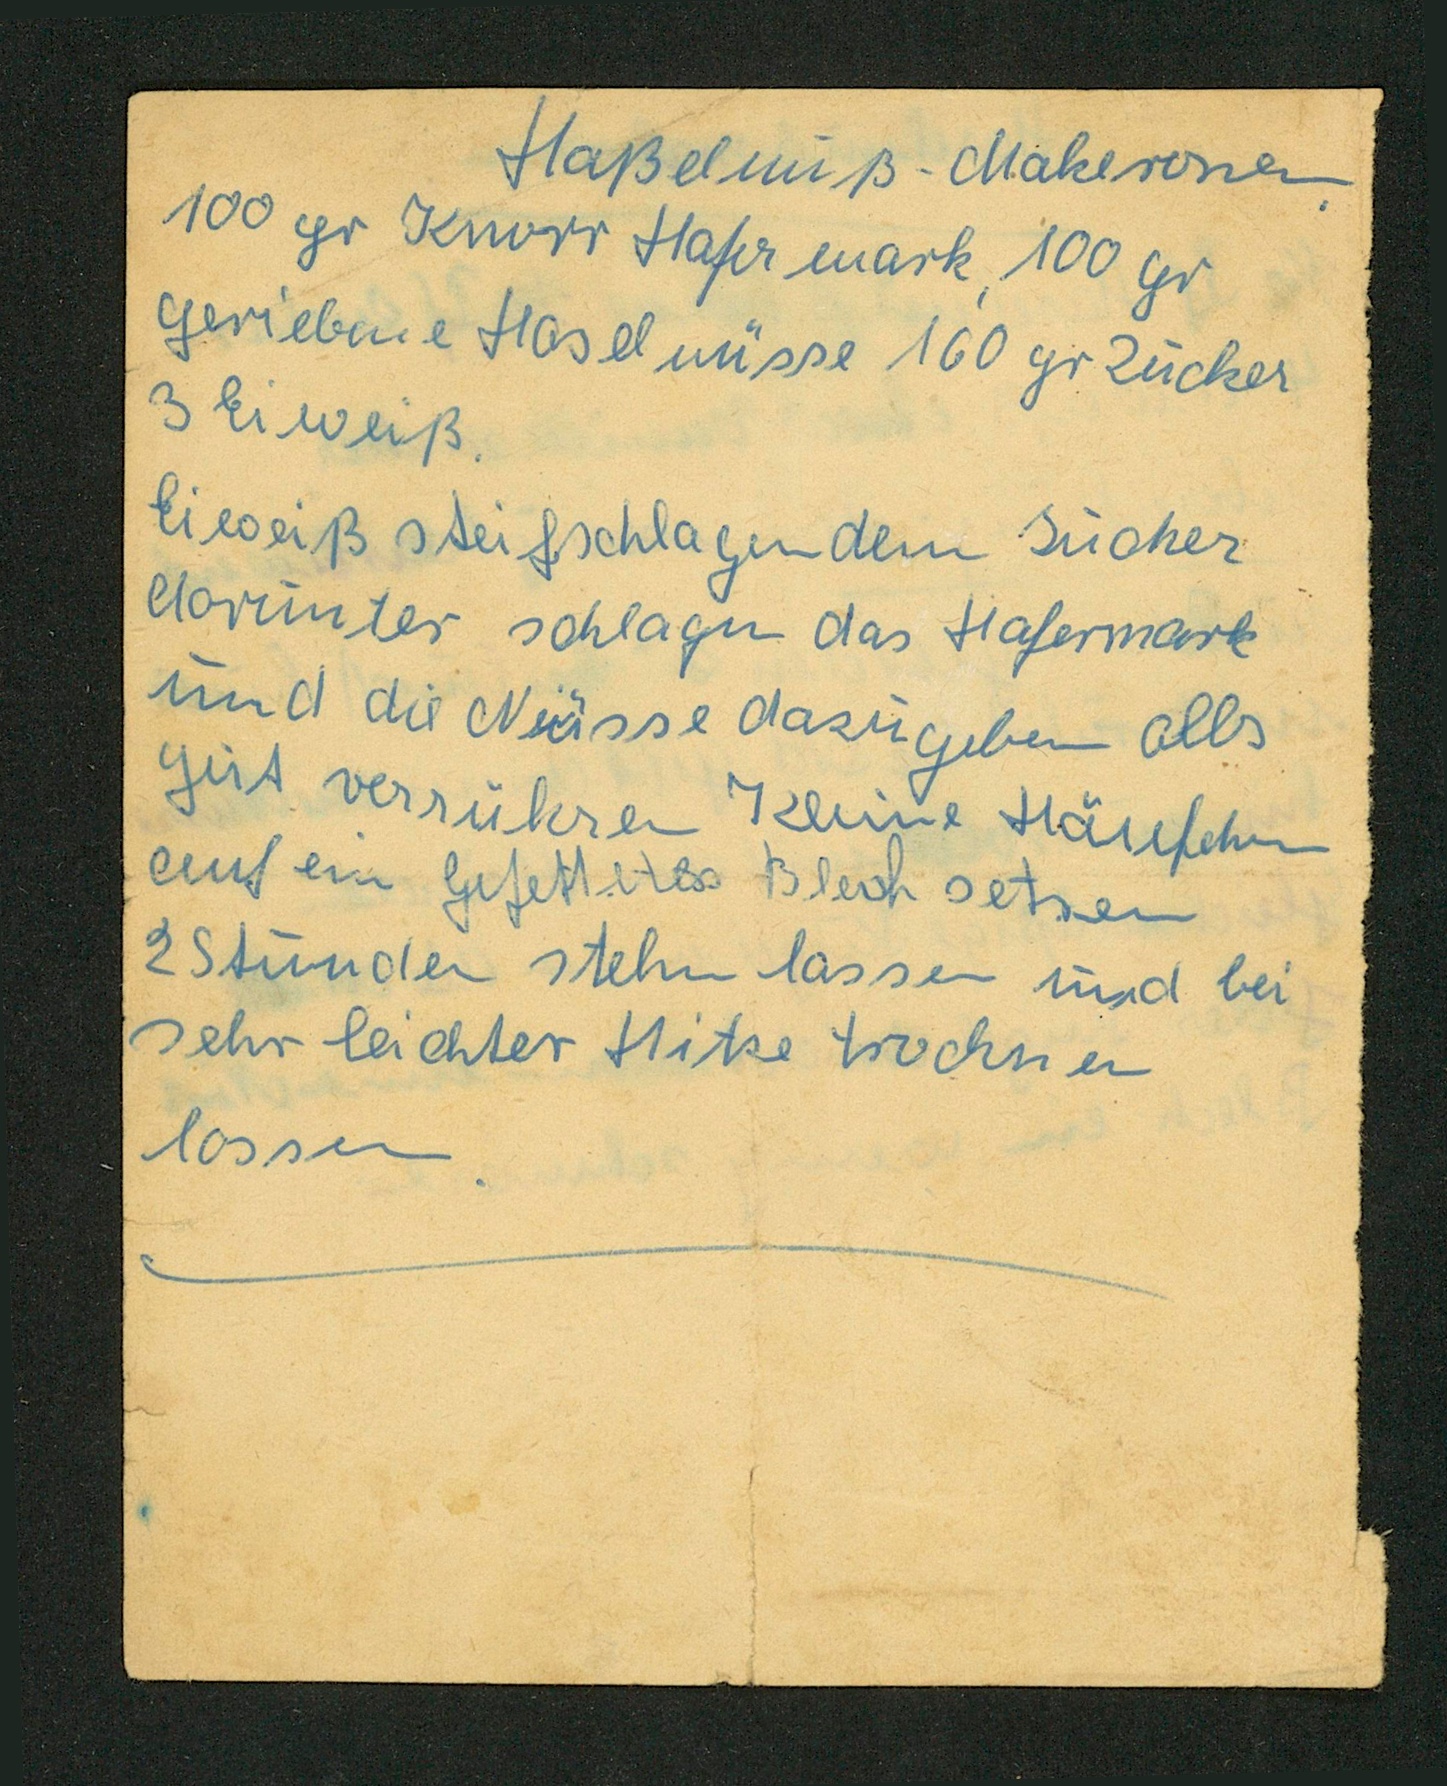 Haßelnuß-Makeronen.
100 gr Knorr Hafermark, 100 gr
geriebene Haselnüsse 160 gr Zucker
3 Eiweiß.
Eiweiß steifschlagen dem Zucker
darunter schlagen das Hafermark
und die Nüsse dazugeben alls
gut verrühren Kleine Häufchen
auf ein Gefettetes Blech setzen
2 Stunden stehn lassen und bei
sehr leichter Hitze trocknen
lassen.